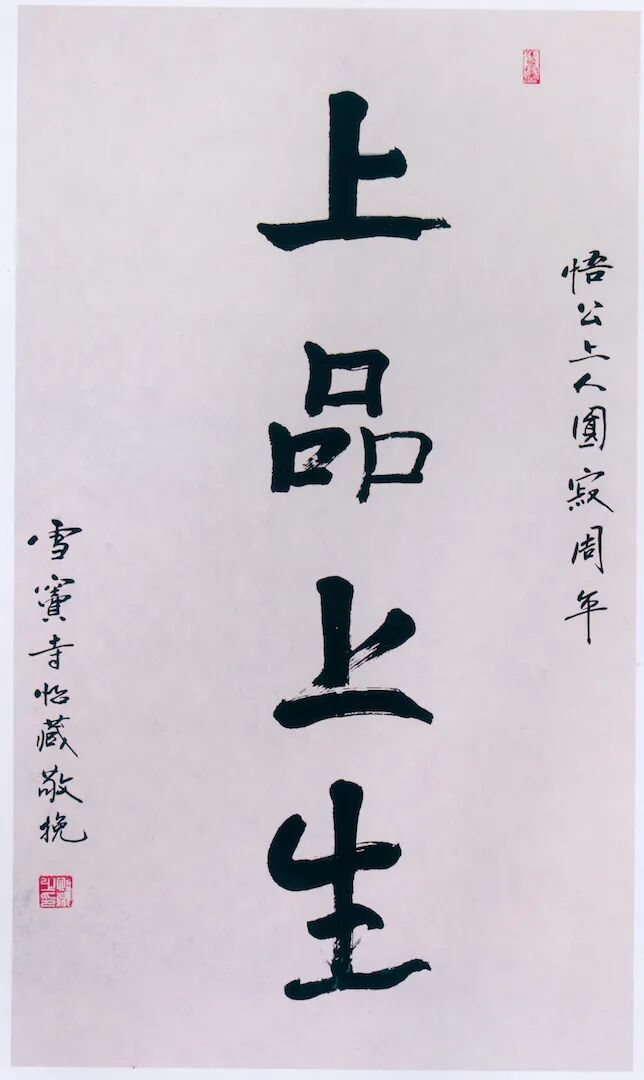 悟公上人圓寂周年
上品上生
雪竇寺怡藏敬挽